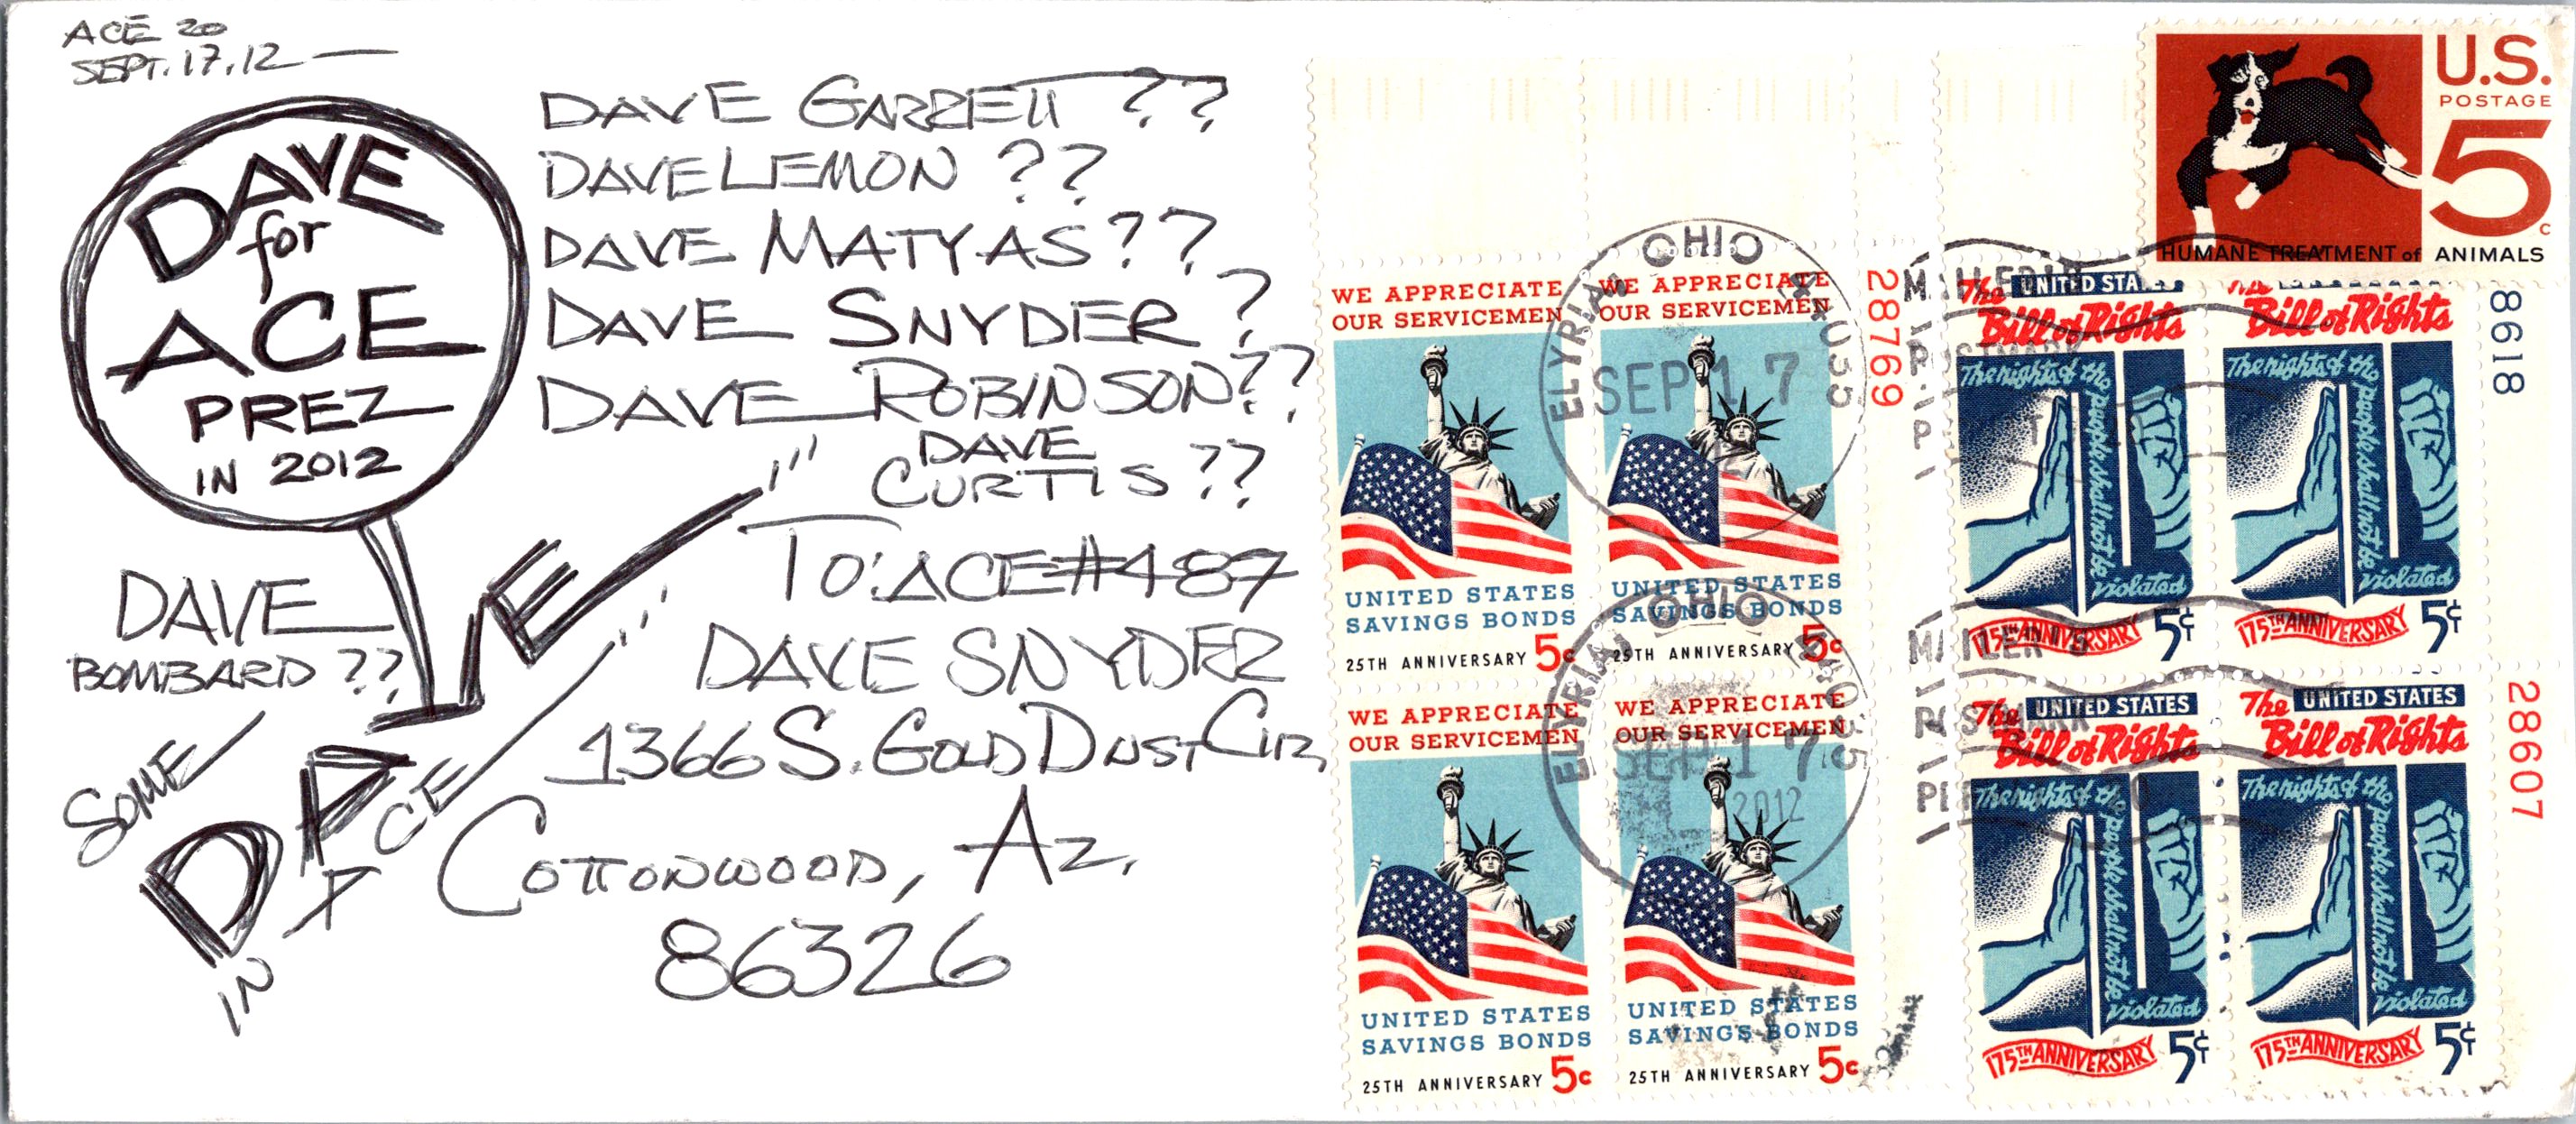 ACE 20
SEPT. 17, 12
DAVE
for
ACE
PREZ
IN 2012
DAVE GARRETT ??
DAVE LEMON ??
DAVE MATYAS ??
DAVE SNYDER ?
DAVE ROBINSON ??
DAVE
CURTIS ??
DAVE
BOMBARD ??
SOME
IN
TO: ACE #487
DAVE SNYDER
1366 S. GOLD DUST CIR,
COTTONWOOD, AZ.
86326
U.S.
POSTAGE
5c
HUMANE TREATMENT of ANIMALS
WE APPRECIATE
OUR SERVICEMEN
UNITED STATES
SAVINGS BONDS
25TH ANNIVERSARY 5c
WE APPRECIATE
OUR SERVICEMEN
UNITED STATES
SAVINGS BONDS
25TH ANNIVERSARY 5c
WE APPRECIATE
OUR SERVICEMEN
UNITED STATES
SAVINGS BONDS
25TH ANNIVERSARY 5c
WE APPRECIATE
OUR SERVICEMEN
UNITED STATES
SAVINGS BONDS
25TH ANNIVERSARY 5c
28769
ELYRIA, OHIO 44035
SEP 17
ELYRIA, OHIO 44035
SEP 17
2012
MAILER'S
POSTMARK
The UNITED STATES
Bill of Rights
The rights of the people shall not be violated
175TH ANNIVERSARY 5¢
Bill of Rights
The rights of the people shall not be violated
175TH ANNIVERSARY 5¢
The UNITED STATES
Bill of Rights
The rights of the people shall not be violated
175TH ANNIVERSARY 5¢
The UNITED STATES
Bill of Rights
The rights of the people shall not be violated
175TH ANNIVERSARY 5¢
28618
28607